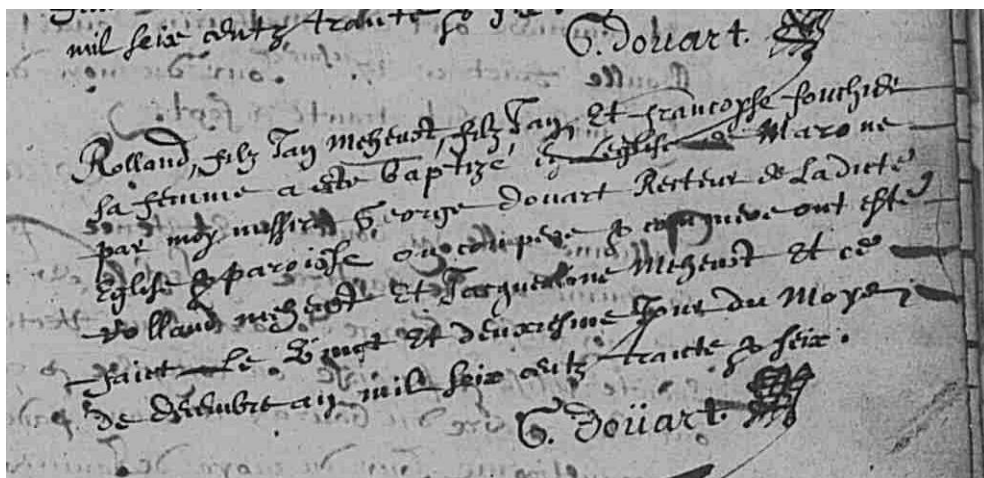 mil seix centz trante &
G. Douart.
Rolland, filz Jan Meheust, filz Jan, Et francoyse fouchide
sa femme a este baptize en Leglise de Maroue
par moy missire George Douart Recteur de Ladicte
Eglise & paroisse ou compere & commere ont este
Rolland Meheust Et Jacqueline Meheust Et ce
faict Le Vingt Et deuxiesme Jour du Moys
de decembre an mil seix centz trante & seix.
G. Doüart.